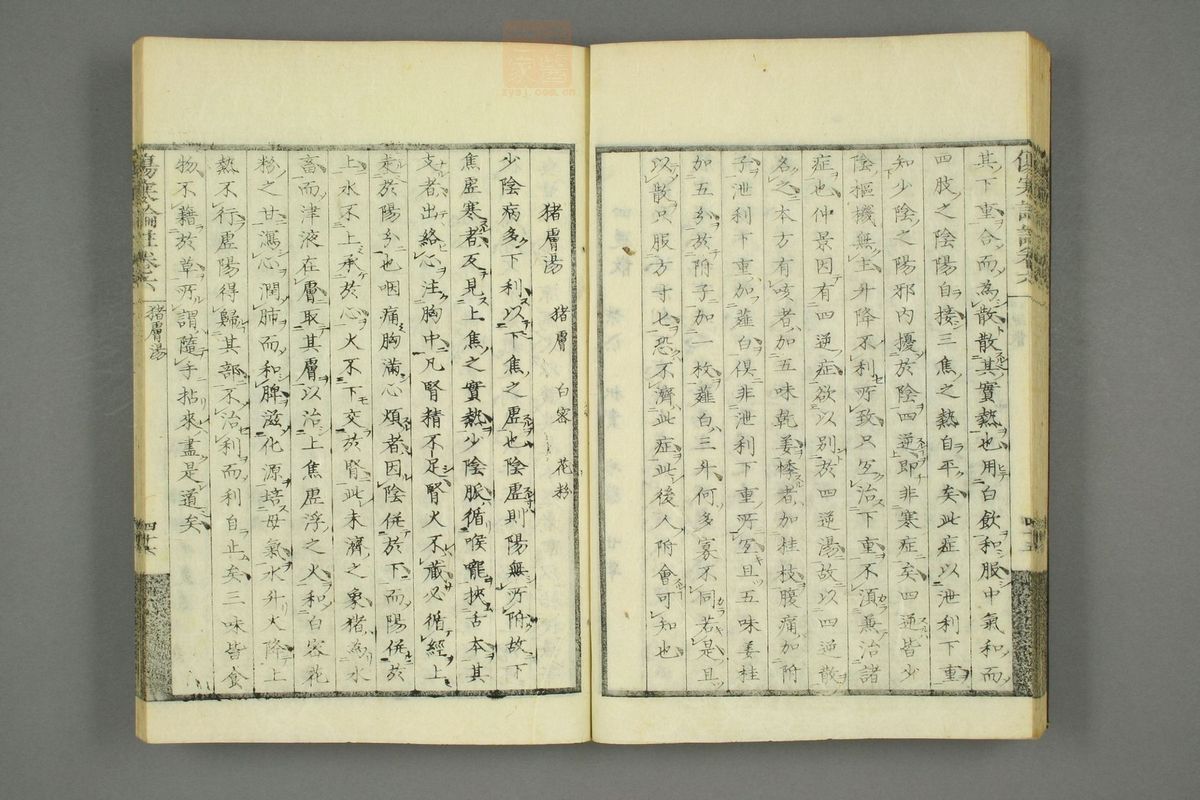 其下重合而為散散其實熱也用白飲和服中氣和而
四肢之陰陽自接三焦之熱自平矣此症以泄利下重
知少陰之陽邪內擾於陰四逆即非寒症矣四逆皆少
陰樞機無主升降不利所致只宜治下重不須兼治諸
症也仲景因有四逆症欲以別於四逆湯故以四逆散
名之本方有咳者加五味乾姜悸者加桂枝腹痛加附
子泄利下重加薤白俱非泄利下重所宜且五味姜桂
加五分於附子加一枚薤白三升何多寡不同若是且
以散只服方寸匕恐不濟此症此後人附會可知也
四十五
猪膚湯
猪膚 白容 花粉
少陰病多下利以下焦之虛也陰虛則陽無所附故下
焦虛寒者反見上焦之實熱少陰脈循喉嚨挾舌本其
支者出絡心注胸中凡腎精不足腎火不藏必循經上
走於陽分也咽痛胸滿心煩者因陰併於下而陽併於
上水不上承於心火不下交於腎此未濟之象猪為水
畜而津液在膚取其膚以治上焦虛浮之火和白容花
粉之甘瀉心潤肺而和脾滋化源培母氣水升火降上
熱不行虛陽得歸其部不治利而利自止矣三味皆食
物不藉於草所謂隨手拈來盡是道矣
傷寒論註卷六
猪膚湯
四十六
zysj.com.cn